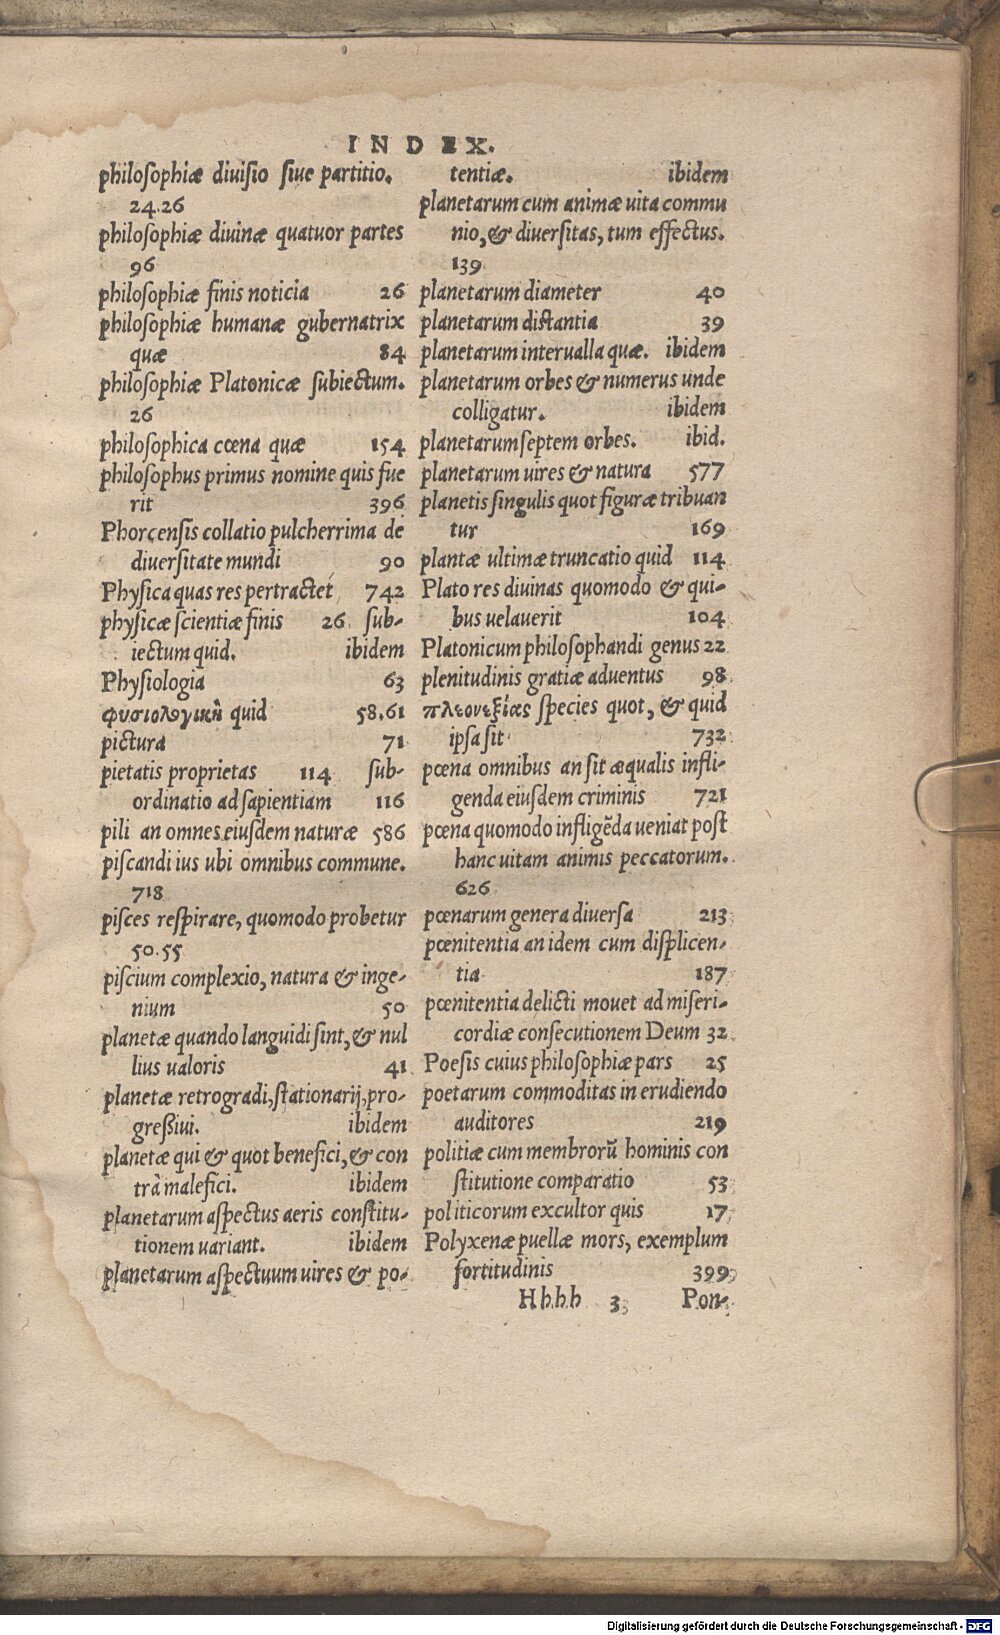 INDEX.
philosophiæ diuisio siue partitio.
24.26
philosophiæ diuinæ quatuor partes
96
philosophiæ finis noticia 26
philosophiæ humanæ gubernatrix
quæ 84
philosophiæ Platonicæ subiectum.
26
philosophica cœna quæ 154
philosophus primus nomine quis fue
rit 396
Phorcensis collatio pulcherrima de
diuersitate mundi 90
Physica quas res pertractet 742
physicæ scientiæ finis 26 sub-
iectum quid. ibidem
Physiologia 63
φυσιολογικὴ quid 58.61
pictura 71
pietatis proprietas 114 sub-
ordinatio ad sapientiam 116
pili an omnes eiusdem naturæ 586
piscandi ius ubi omnibus commune.
718
pisces respirare, quomodo probetur
50.55
piscium complexio, natura & inge-
nium 50
planetæ quando languidi sint, & nul
lius ualoris 41
planetæ retrogradi, stationarij, pro-
greßiui. ibidem
planetæ qui & quot benefici, & con
trà malefici. ibidem
planetarum aspectus aeris constitu-
tionem uariant. ibidem
planetarum aspectuum uires & po-
tentiæ. ibidem
planetarum cum animæ uita commu
nio, & diuersitas, tum effectus.
139
planetarum diameter 40
planetarum distantia 39
planetarum interualla quæ. ibidem
planetarum orbes & numerus unde
colligatur. ibidem
planetarum septem orbes. ibid.
planetarum uires & natura 577
planetis singulis quot figuræ tribuan
tur 169
plantæ ultimæ truncatio quid 114
Plato res diuinas quomodo & qui-
bus uelauerit 104
Platonicum philosophandi genus 22
plenitudinis gratiæ aduentus 98
πλεονεξίας species quot, & quid
ipsa sit 732
pœna omnibus an sit æqualis infli-
genda eiusdem criminis 721
pœna quomodo infligẽda ueniat post
hanc uitam animis peccatorum.
626
pœnarum genera diuersa 213
pœnitentia an idem cum displicen-
tia 187
pœnitentia delicti mouet ad miseri-
cordiæ consecutionem Deum 32
Poesis cuius philosophiæ pars 25
poetarum commoditas in erudiendo
auditores 219
politiæ cum membrorũ hominis con
stitutione comparatio 53
politicorum excultor quis 17
Polyxenæ puellæ mors, exemplum
fortitudinis 399
Hhhh 3 Pon-
Digitalisierung gefördert durch die Deutsche Forschungsgemeinschaft - DFG